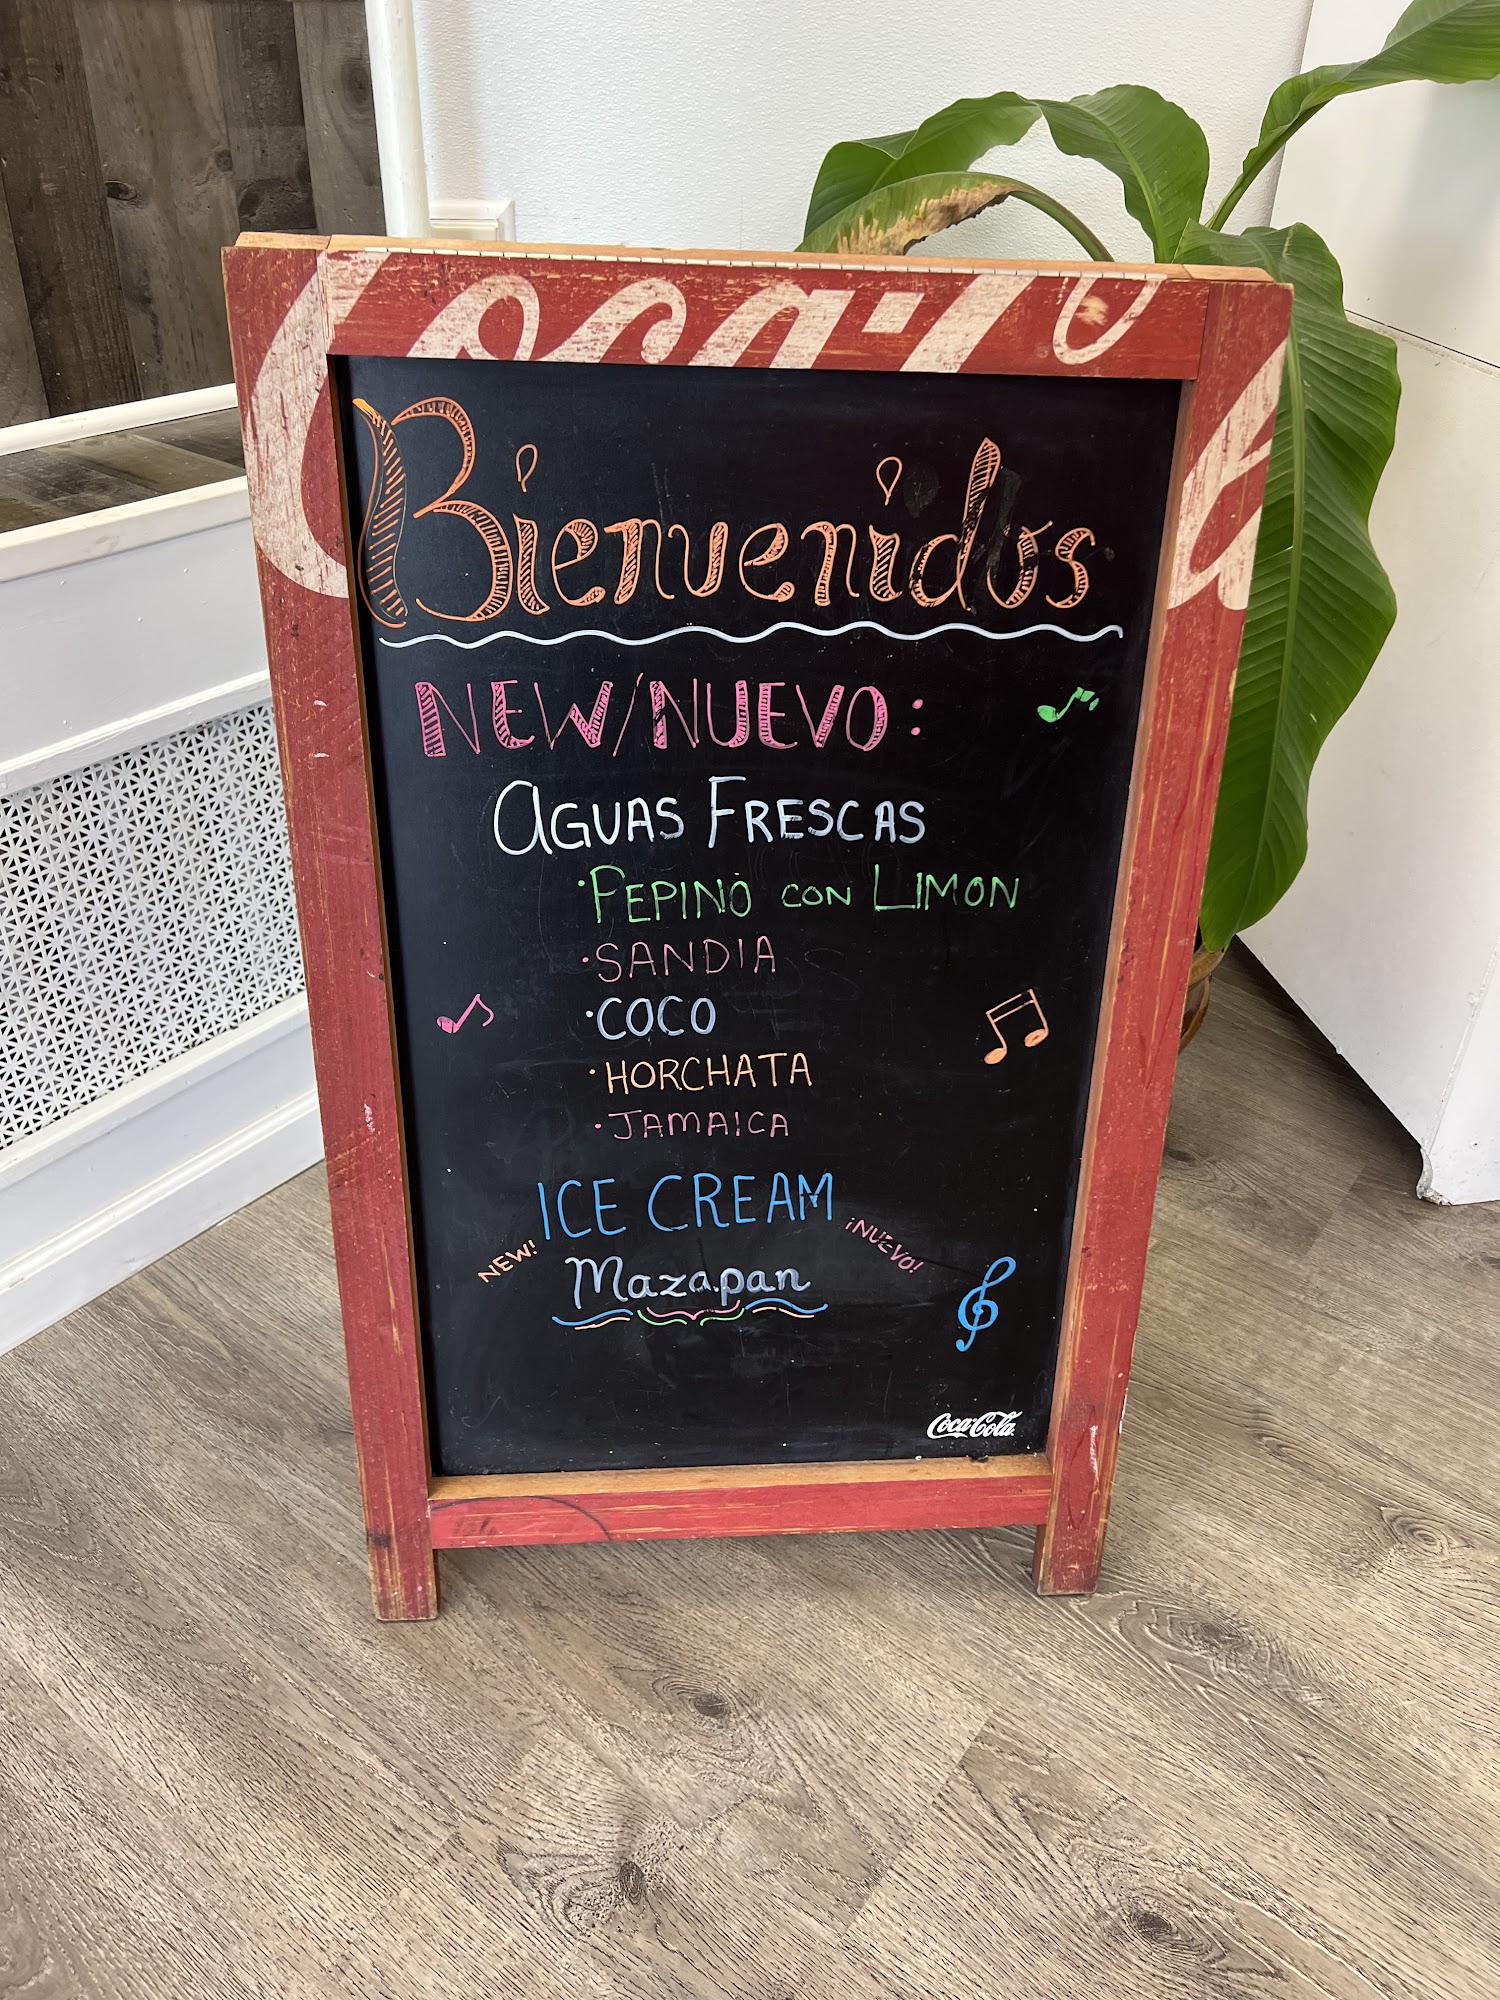 Coca-Cola
Bienvenidos
NEW/NUEVO:
AGUAS FRESCAS
·PEPINO CON LIMON
·SANDIA
·COCO
·HORCHATA
·JAMAICA
ICE CREAM
NEW!
¡NUEVO!
Mazapan
Coca-Cola